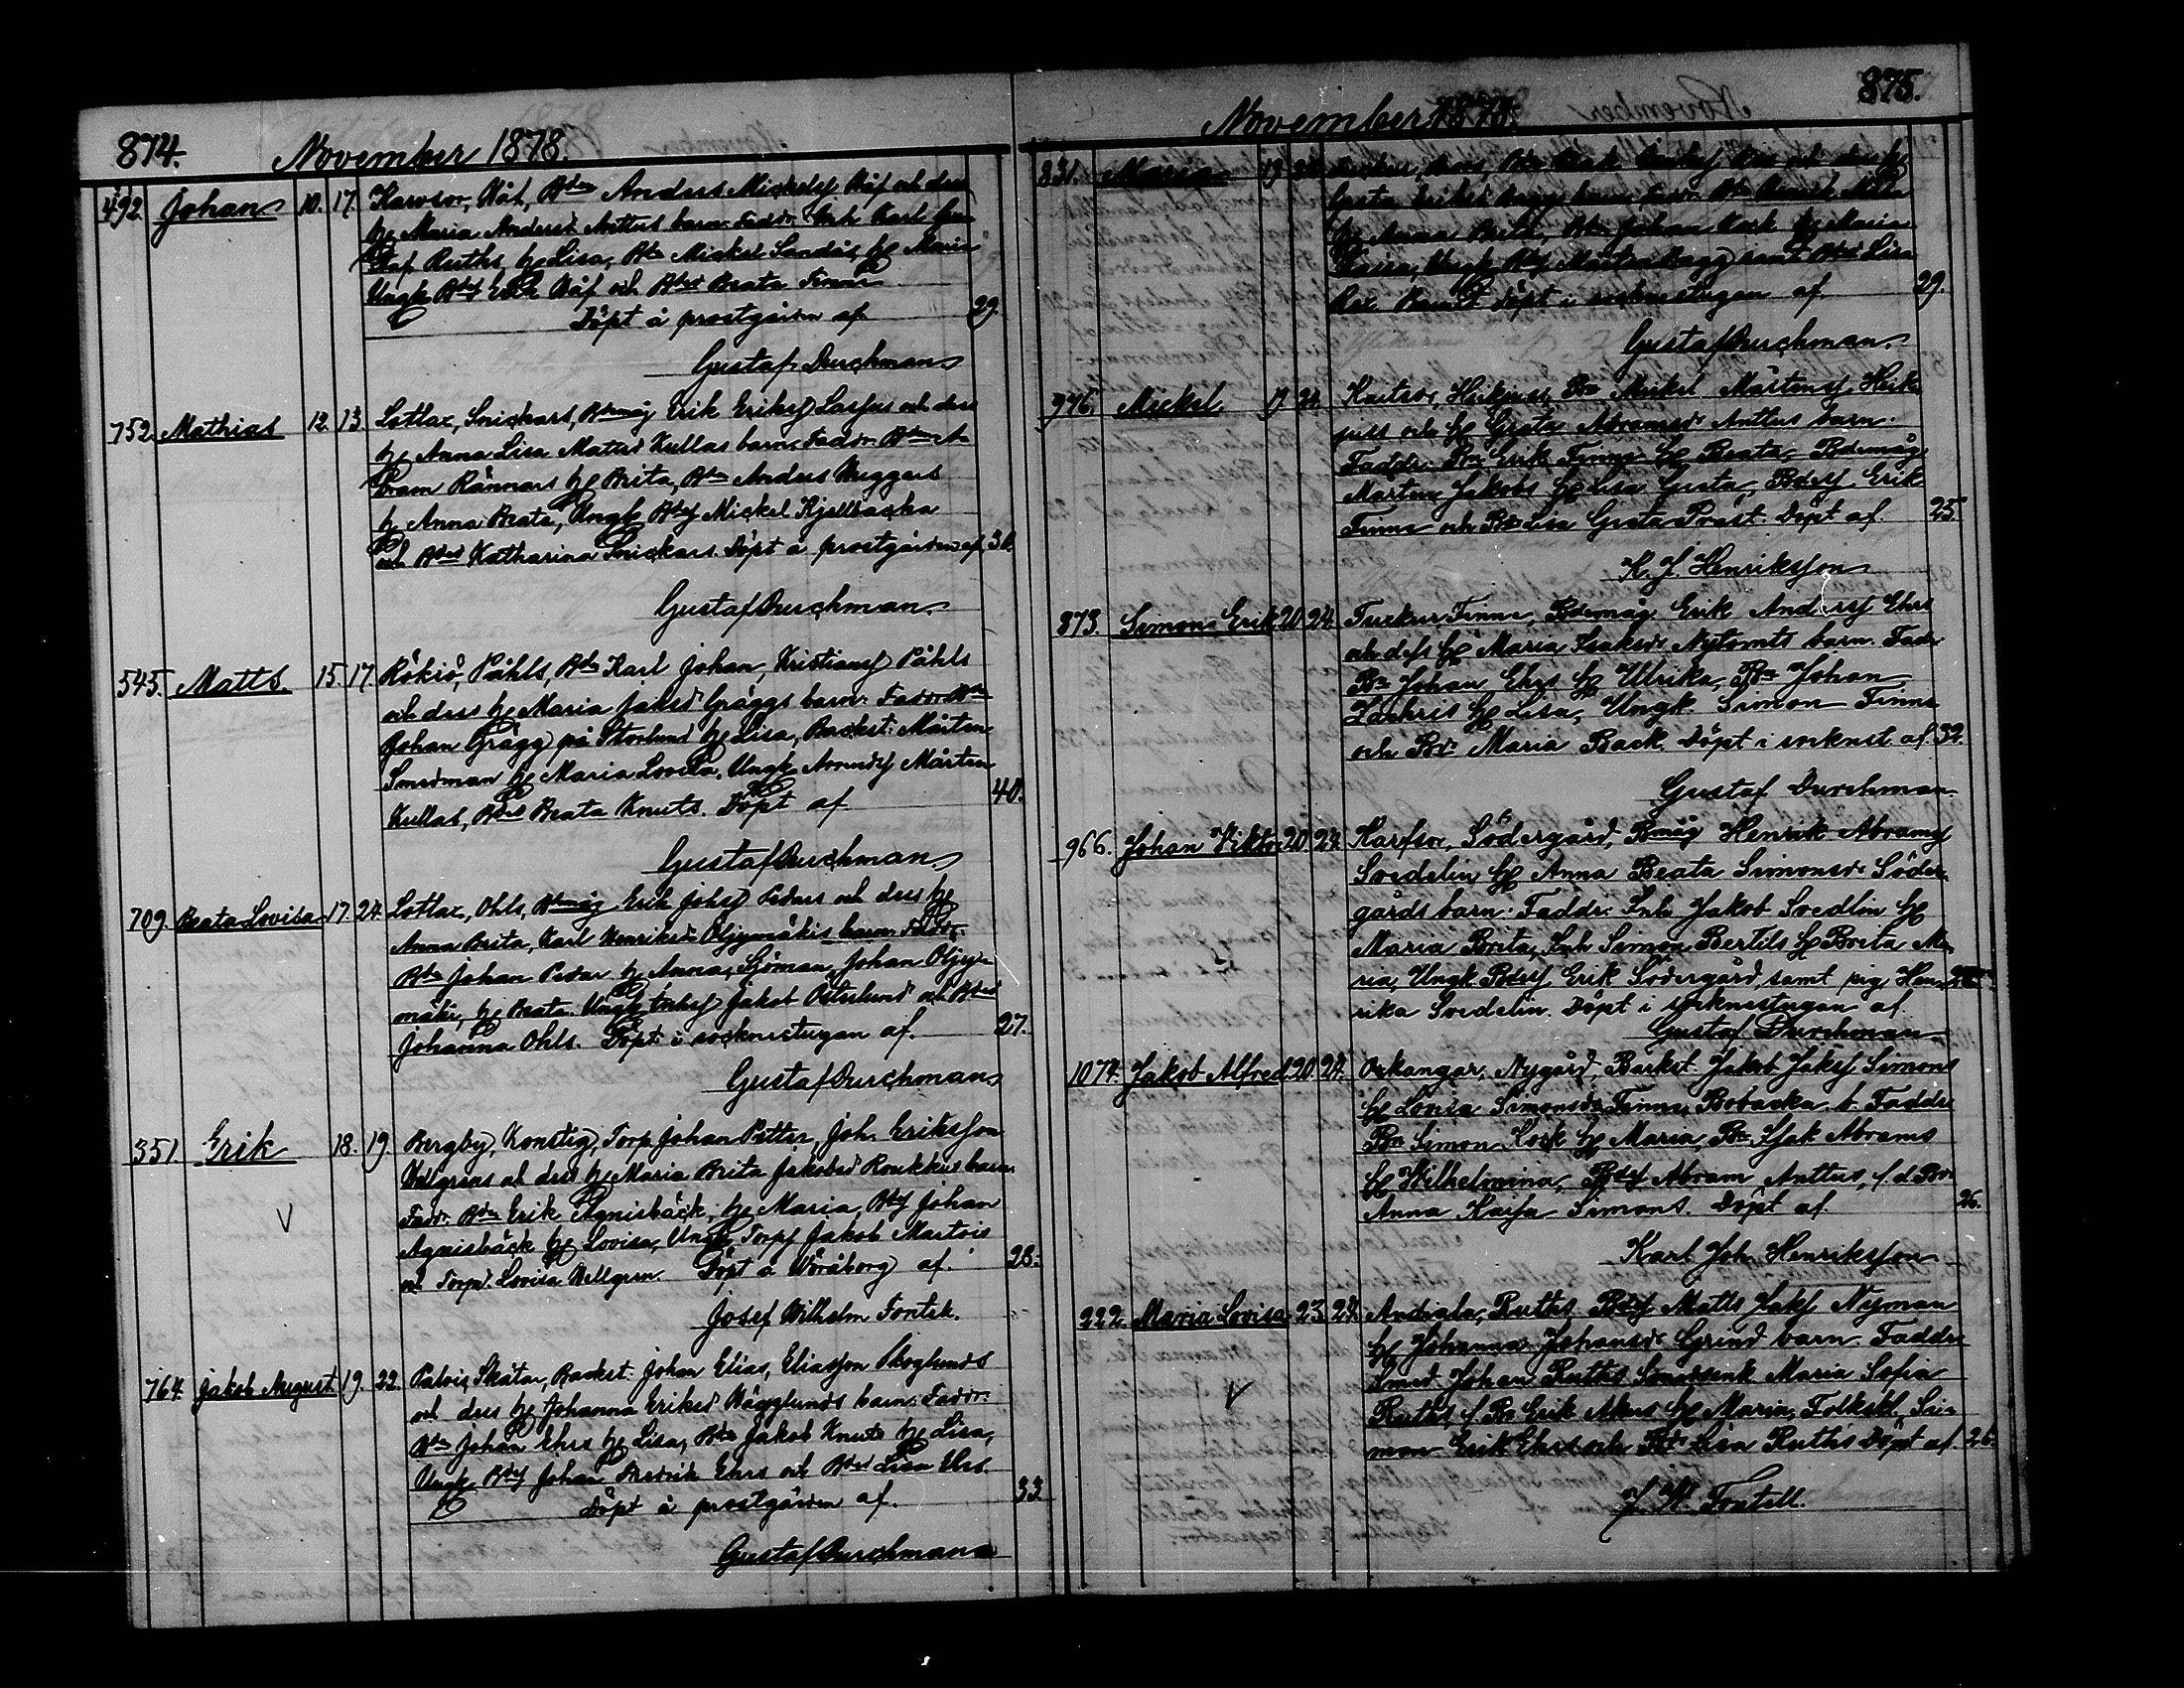 874. November 1878.
492. Johan 10. 17. Karvsor, Båt, Bdn Anders Mickelsf Båf och dess
h. Maria Andersd. Anttus barn. Faddr. Inh. Karl Gus-
taf Ruths h. Lisa, Bdn Mickel Sandås, h. Maria
Ungk. Bdsf Erik Båf och Bdsd Beata Finne
Döpt å prostgården af 29.
Gustaf Durchman
752. Mathias 12. 13. Lotlax, Snickars, Bdemåg Erik Eriksf Lasfus och dess
h. Anna Lisa Mattsd Kullas barn. Faddr. Bdn A-
bram Rännars h. Brita, Bdn Anders
h. Anna Beata, Ungk. Bdsf Mickel Kjellbacka
och Bdsd Katharina Snickars. Döpt å prostgården af 30.
Gustaf Durchman
545. Matts. 15. 17. Rökiö, Påhls, Bdn Karl Johan, Kristiansf Påhls
och dess h. Maria Jaksd Gräggs barn. Faddr. Bdn
Johan Grägg på Storlund h. Lisa, Backst. Mårten
Smedman h. Maria Lovisa, Ungk. Mårten
Kullas, Bdsd Beata Knuts. Döpt af 40.
Gustaf Durchman
709. Beata Lovisa 17. 24. Lotlax, Ohls, Bdemåg Erik Johsf Peders och dess h.
Anna Brita, Karl Henriksd Öljymäkis barn. Faddr.
Bdn Johan Peder h. Anna, Sjöman Johan Öljy-
mäki, h. Beata. Ungk. Inhsf Jakob Österlund och Bdsd
Johanna Ohls. Döpt i socknestugan af. 27.
Gustaf Durchman
351. Erik 18. 19. Bergby, Konstig, Torp. Johan Petter, Joh. Eriksson
Vellgrens och dess h. Maria Brita Jakobsd Roukkus barn.
Faddr. Bdn Erik Agnisbäck, h. Maria, Bdsf Johan
Agnisbäck h. Lovisa, Ungk. Torpsf Jakob Martois
och Torpd. Lovisa Vellgren. Döpt å Vöråborg af. 28.
Josef Wilhelm Fontell.
764. Jakob August 19. 22. Palvis, Skätar, Backst. Johan Elias, Eliasson Skoglunds
och dess h. Johanna Eriksd Hägglunds barn. Faddr.
Bdn Johan Ehrs h. Lisa, Bdn Jakob Knuts h. Lisa,
Ungk. Bdsf Johan Fredrik Ehrs och Bdsd Lisa Ehrs.
Döpt å prostgården af. 33.
Gustaf Durchman
875. November 1878.
831. Maria 19
Greta Eriksd Baggs barn, Faddr. Bdn
h. Anna Brita, Bdn Johan Kock h. Maria
Kaisa, Ungk. Bdsf Mårten Bagg samt Bdsd Lisa
Döpt i socknestugan af. 29.
Gustaf Durchman.
976. Mickel. 19 24. Kaitsor, Heikjuss, Bn Mickel Mårtensf Heik-
juss och h. Greta Abramsdr Anttus barn.
Faddr. Bn Erik Finne h. Beata, Bdemåg
Mårten Jakobs h. Lisa Greta, Bdsf Erik
Finne och Bdr Lisa Greta Prost. Döpt af. 25.
K. J. Henriksson
873. Simon Erik 20 24. Tuckur Finne, Bdemåg Erik Andersf Ehrs
och dess h. Maria Isaksdr Nytomts barn. Fadr
Bn Johan Ehrs h. Ulrika, Bn Johan
Zachris h. Lisa, Ungk. Simon Finne
och Bdr Maria Back. Döpt i socknest. af. 32.
Gustaf Durchman.
966. Johan Viktor 20 24. Karfsor, Södergård, Bmåg Henrik Abramsf
Svedelin h. Anna Beata Simonsdr Söder-
gårds barn. Faddr. Inh. Jakob Svedlin h.
Maria Brita, Inh Simon Bertils h. Brita Ma-
ria, Ungk. Bdsf Erik Södergård, samt pig. Hen-
rika Svedelin. Döpt i socknestugan af
Gustaf Durchman
1074. Jakob Alfred 20 24. Oxkangar, Nygård, Backst. Jakob Jaksf Simons
h. Lovisa Simonsdr Finne, Bobacka b. Faddr
Bn Simon Kock h. Maria, Bn Isak Abrams
h. Wilhelmina, Bdsf Abram Anttus, f.d. Bdr
Anna Kajsa Simons. Döpt af. 26.
Karl Joh. Henriksson
222. Maria Lovisa 23. 24. Andiala, Ruths Bdsf Matts Jaksf Nyman
h. Johanna Johansdr Grind barn. Faddr
Smed Johan Ruths Maria Sofia
Ruths, f. Bn Erik Akers h. Maria, Folkskl. Si-
mon Erik Ehrs och Bdr Lisa Ruths Döpt af. 26.
J. W. Fontell.